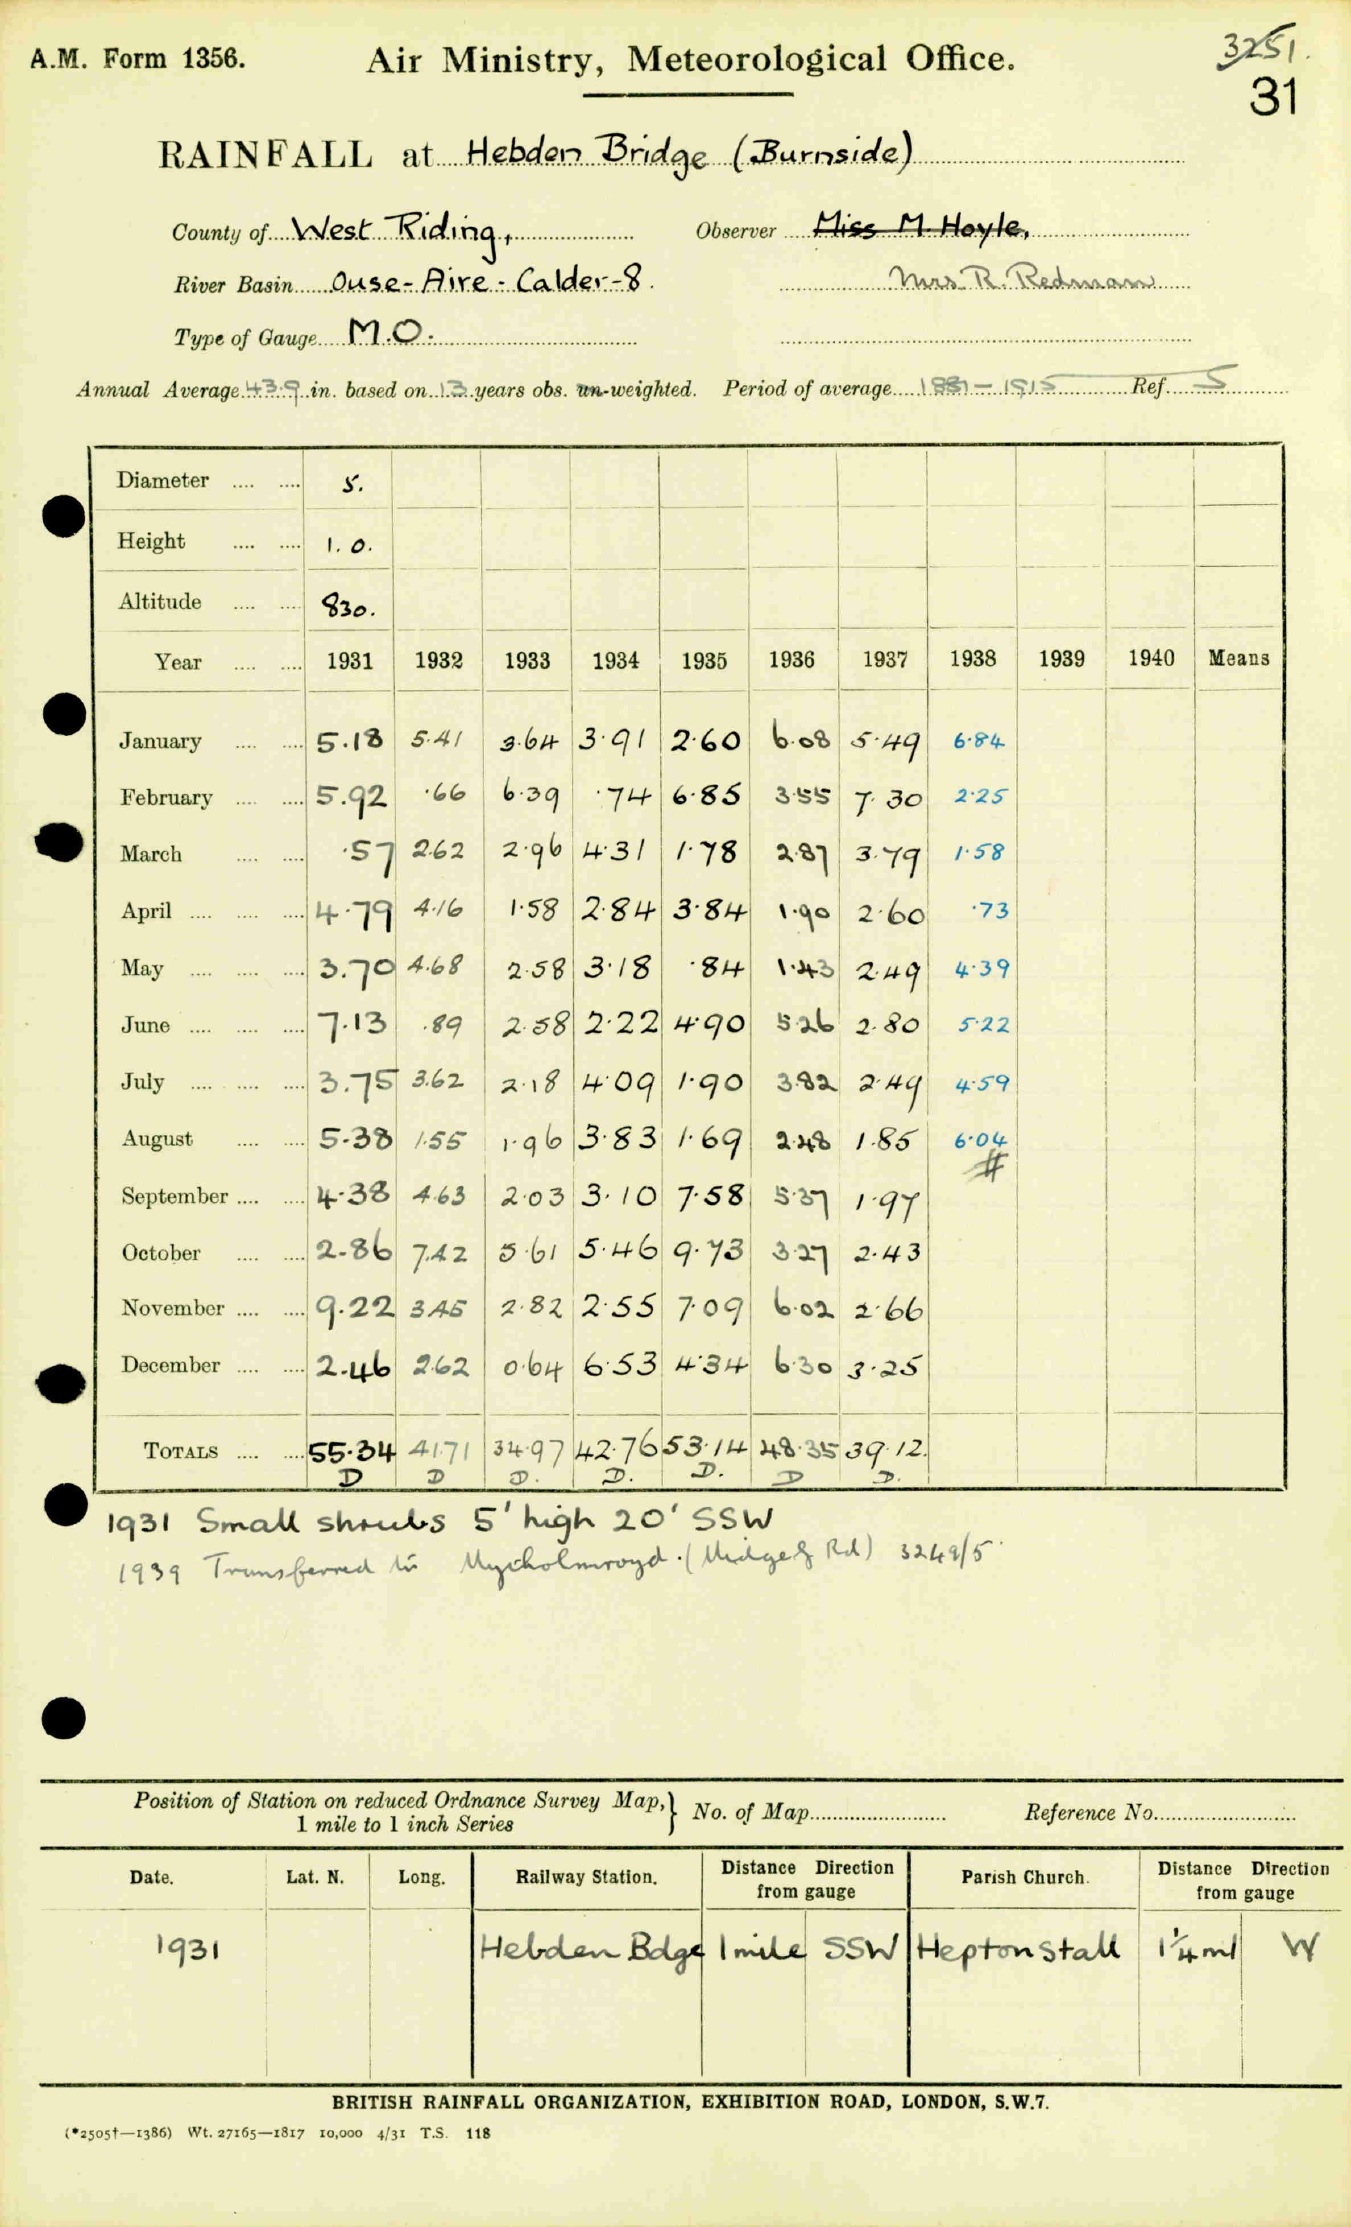 A.M. Form 1356. Air Ministry, Meteorological Office. 3251.
31
RAINFALL at Hebden Bridge (Burnside)
County of West Riding, Observer Miss M. Hoyle,
River Basin Ouse-Aire-Calder-8. Mrs R. Redman
Type of Gauge M.O.
Annual Average 43.9 in. based on 13 years obs. un-weighted. Period of average 1881-1915 Ref. 5
Diameter .... .... 5.
Height .... .... 1.0.
Altitude .... .... 830.
Year .... .... 1931 1932 1933 1934 1935 1936 1937 1938 1939 1940 Means
January .... .... 5.18 5.41 3.64 3.91 2.60 6.08 5.49 6.84
February .... .... 5.92 .66 6.39 .74 6.85 3.55 7.30 2.25
March .... .... .57 2.62 2.96 4.31 1.78 2.87 3.79 1.58
April .... .... .... 4.79 4.16 1.58 2.84 3.84 1.90 2.60 .73
May .... .... .... 3.70 4.68 2.58 3.18 .84 1.43 2.49 4.39
June .... .... .... 7.13 .89 2.58 2.22 4.90 5.26 2.80 5.22
July .... .... .... 3.75 3.62 2.18 4.09 1.90 3.82 2.49 4.59
August .... .... 5.38 1.55 1.96 3.83 1.69 2.48 1.85 6.04
#
September .... .... 4.38 4.63 2.03 3.10 7.58 5.37 1.97
October .... .... 2.86 7.42 5.61 5.46 9.73 3.27 2.43
November .... .... 9.22 3.45 2.82 2.55 7.09 6.02 2.66
December .... .... 2.46 2.62 0.64 6.53 4.34 6.30 3.25
TOTALS .... .... 55.34 41.71 34.97 42.76 53.14 48.35 39.12.
D D D. D. D. D D.
1931 Small shrubs 5' high 20' SSW
1939 Transferred to Mytholmroyd. (Midgeley Rd) 3249/5
Position of Station on reduced Ordnance Survey Map, } No. of Map Reference No.
1 mile to 1 inch Series
Date. Lat. N. Long. Railway Station. Distance Direction from gauge Parish Church. Distance Direction from gauge
1931 Hebden Bdge 1 mile SSW Heptonstall 1¼ ml W
BRITISH RAINFALL ORGANIZATION, EXHIBITION ROAD, LONDON, S.W.7.
(*2505†—1386) Wt. 27165—1817 10,000 4/31 T.S. 118